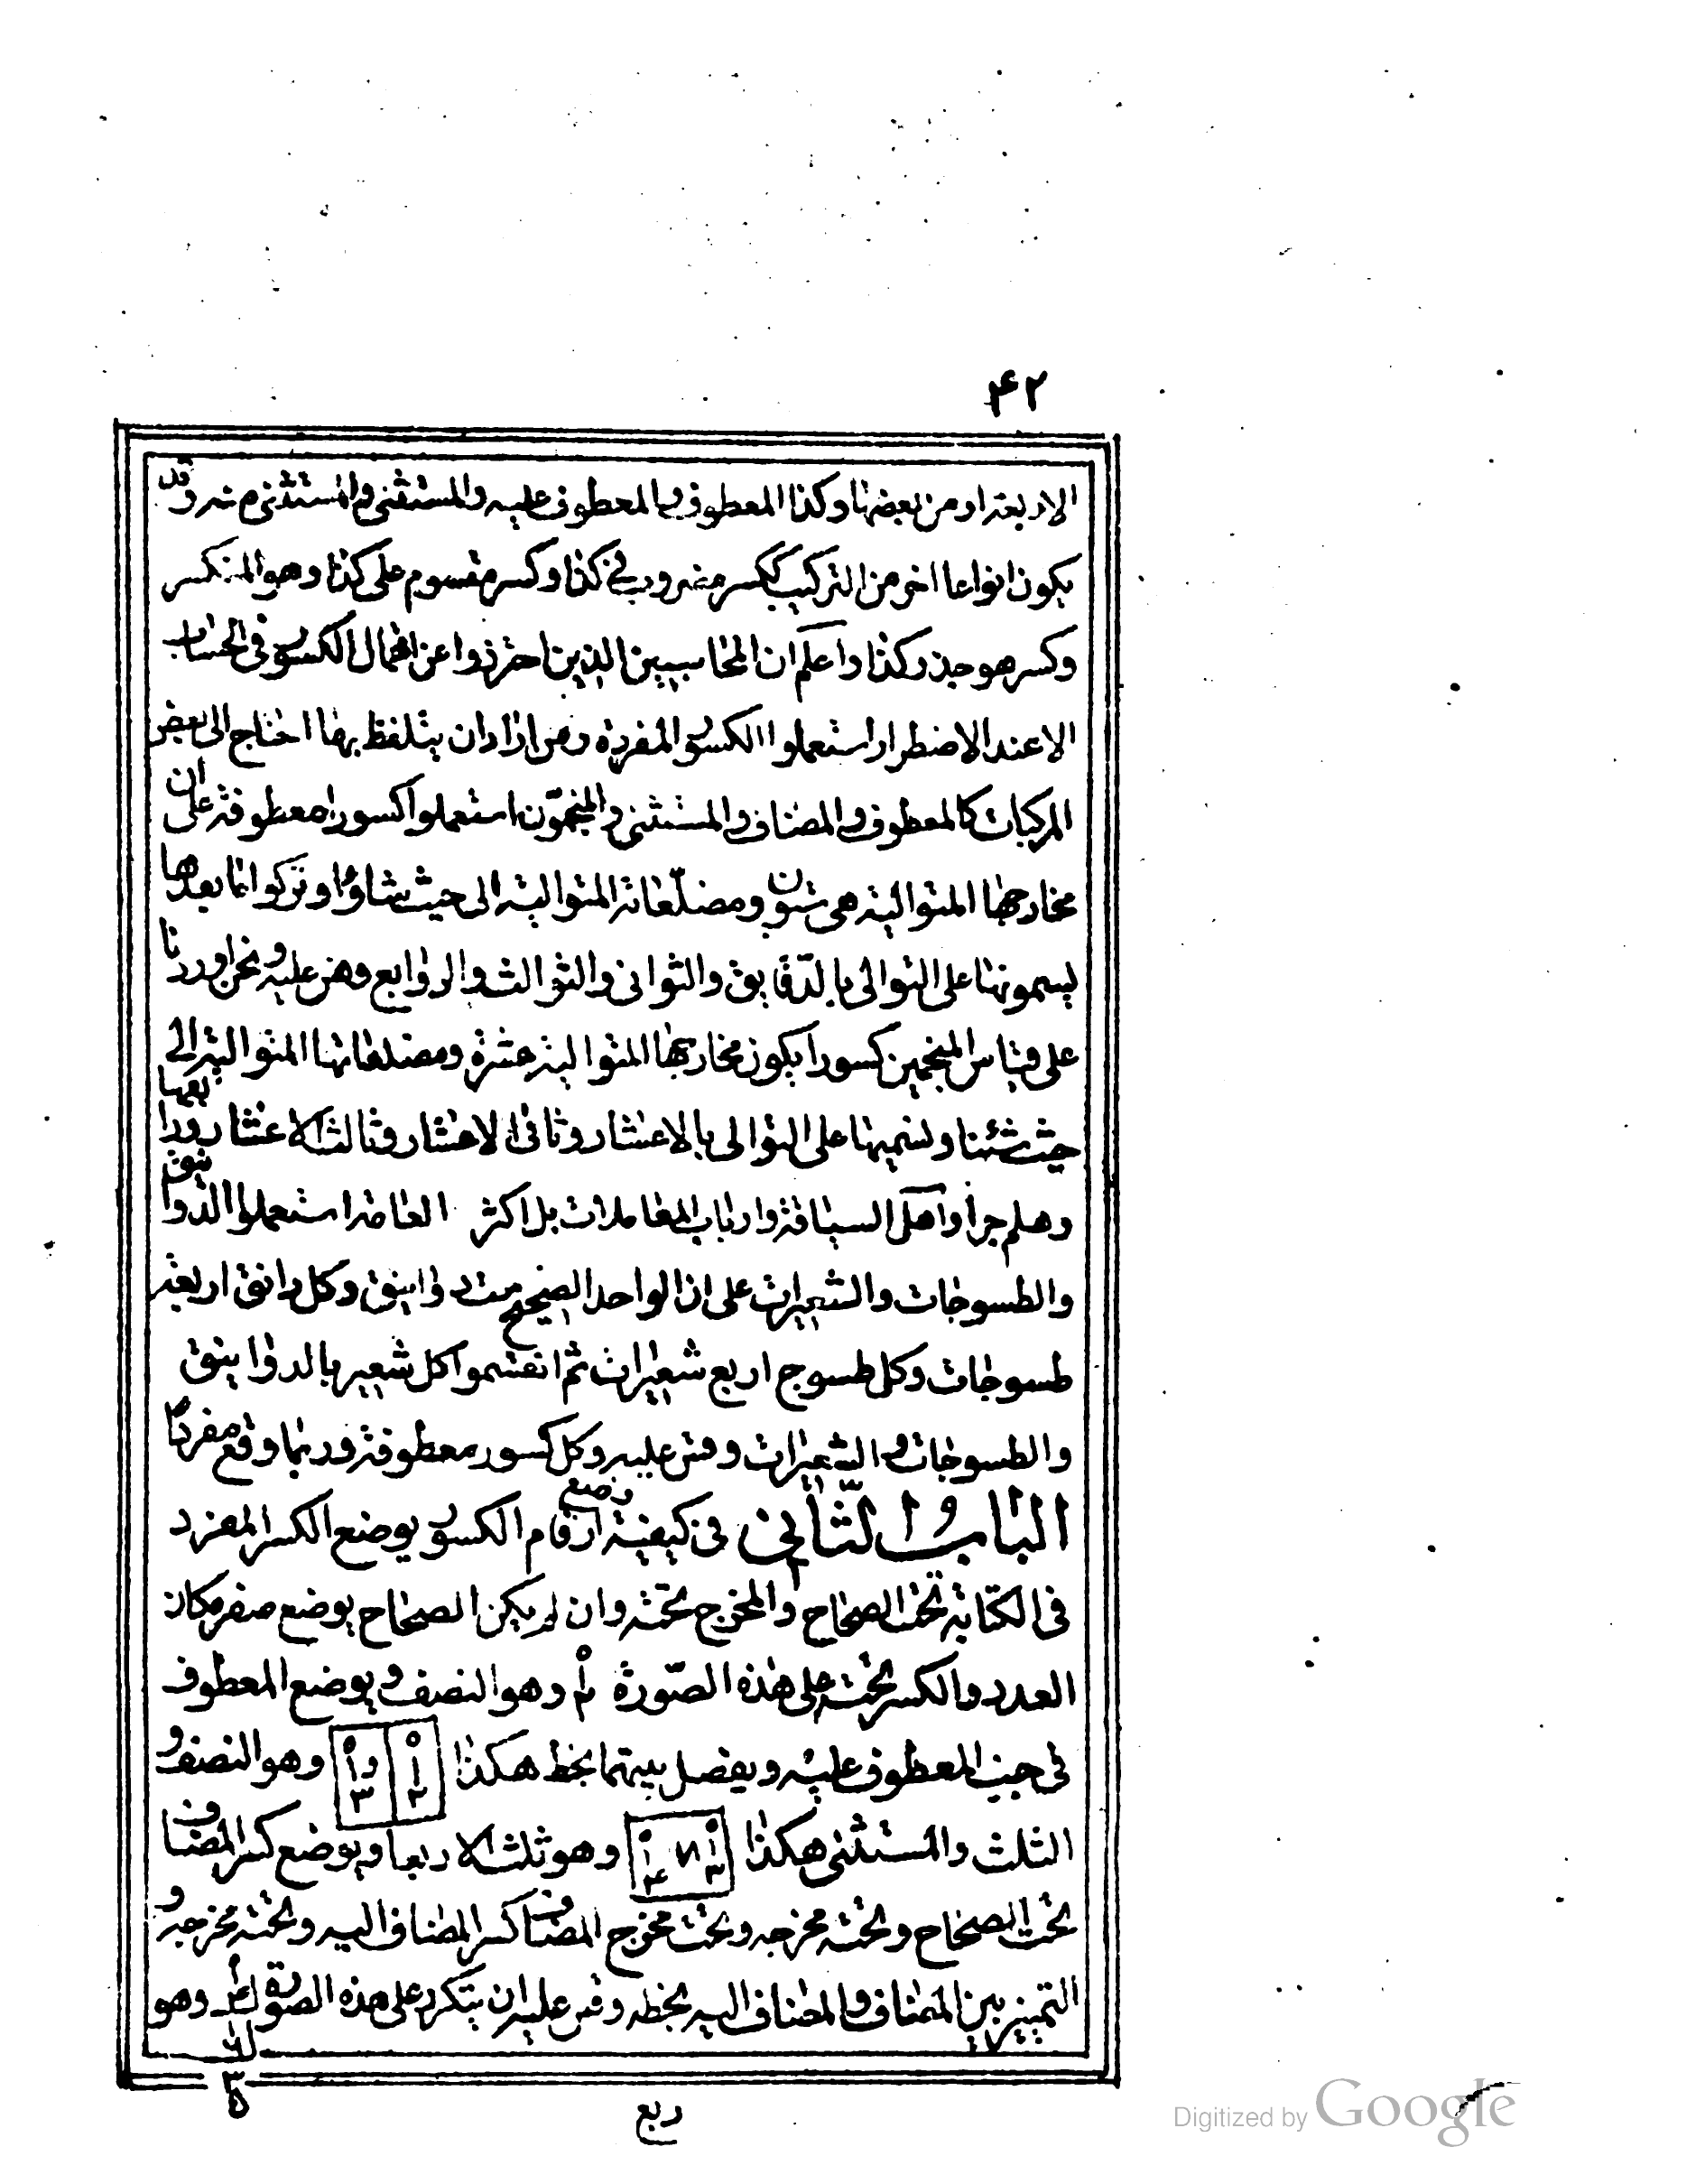 ۴۲
الاربعة او من بعضها وكذا المعطوف والمعطوف عليه والمستثنى والمستثنى منه وقد
يكون انواعا اخر من التركيب ككسر مضروب في كذا وكسر مقسوم على كذا وهو المنكسر
وكسر هو جذر كذا واعلم ان المحاسبين الذين احترزوا عن اهمال الكسور في الحساب
الا عند الاضطرار استعملوا الكسور المفردة ومن اراد ان يتلفظ بها احتاج الى بعض
المركبات كالمعطوف والمضاف والمستثنى والمنجمون استعملوا كسورا معطوفة على ان
مخارجها المتوالية هى ستون ومضلعاته المتوالية الى حيث شاؤا وتركوا ما بعدها
يسمونها على التوالى بالدقايق والثوانى والثوالث والروابع وقس عليه ونحن اوردنا
على قياس المنجمين كسورا يكون مخارجها المتوالية عشرة ومضلعاتها المتوالية الى
حيث شئنا ونسميها على التوالى بالاعشار وثانى الاعشار وثالث الاعشار ورابعها
وهلم جرا واهل السياقة وارباب المعاملات بل اكثر العامة استعملوا الدوانيق
والطسوجات والشعيرات على ان الواحد الصحيح ستة دوانيق وكل دانق اربعة
طسوجات وكل طسوج اربع شعيرات ثم انقسموا كل شعير بالدوانيق
والطسوجات والشعيرات وقس عليه وكل كسور معطوفة وربما وقع مفردا
الباب الثانى فى كيفية وضع ارقام الكسور يوضع الكسر المفرد
فى الكتابة تحت الصحاح والمخرج تحته وان لم يكن الصحاح يوضع صفر مكان
العدد والكسر تحته على هذه الصورة وهو النصف ويوضع المعطوف
فى جنب المعطوف عليه ويفصل بينهما بخط هكذا ۰ ۱ ۲ ۰ ۱ ۳ وهو النصف و
الثلث والمستثنى هكذا وهو ثلث الا ربعا ويوضع كسر المضاف
تحت الصحاح وتحته مخرجه وتحت مخرج المضاف كسر المضاف اليه وتحته مخرجه و
التمييز بين المضاف والمضاف اليه بخط وقس عليه ان يتكرر على هذه الصورة وهو
ربع
Digitized by Google